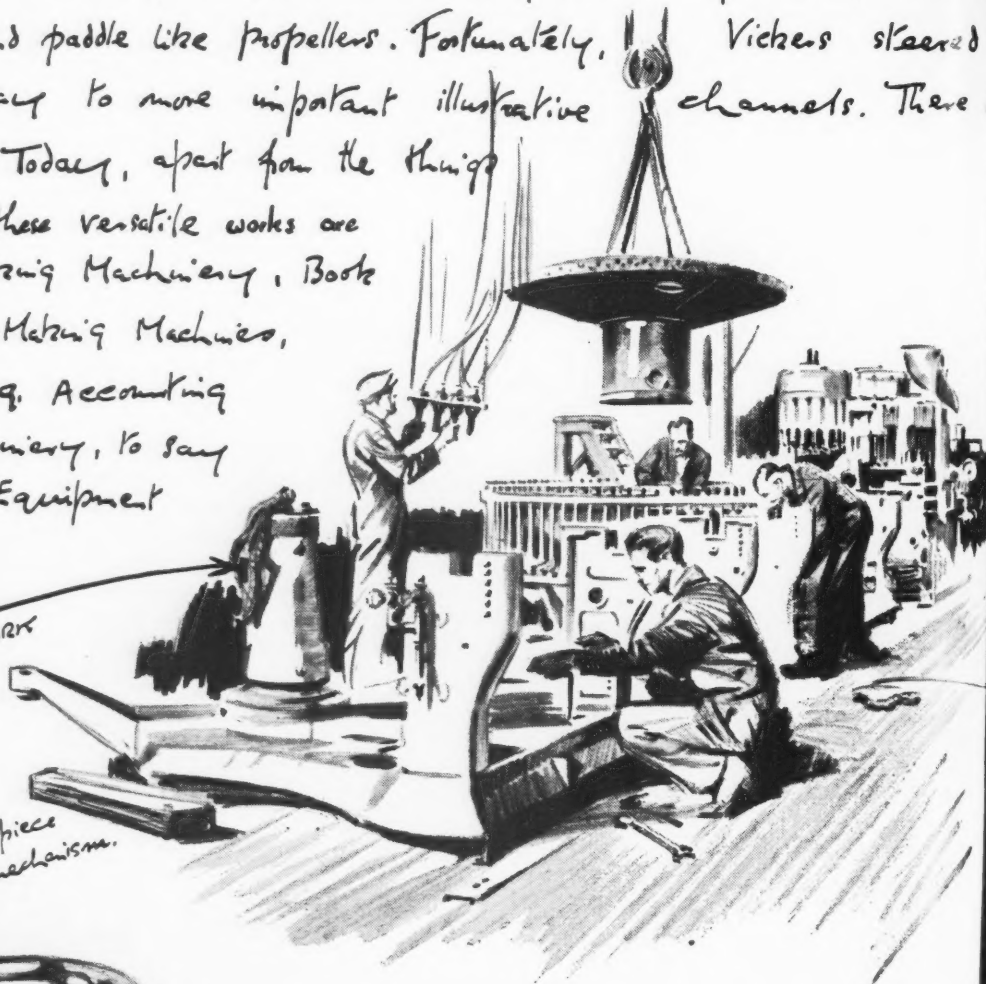 d paddle like propellers. Fortunately, Vickers steered
to more important illustrative channels. There
Today, apart from the things
these versatile works are
Machinery, Book
Making Machines,
Accounting
to say
Equipment
piece
mechanism.